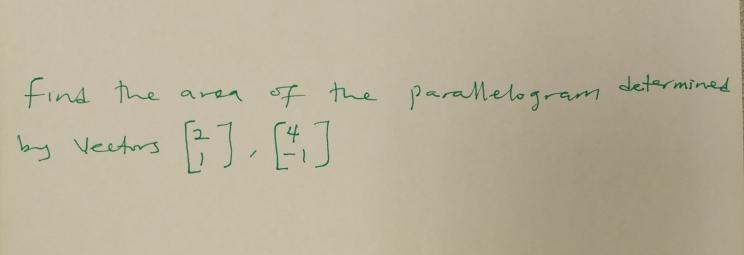 find the area of the parallelogram determined
by vectors [2 1], [4 -1]